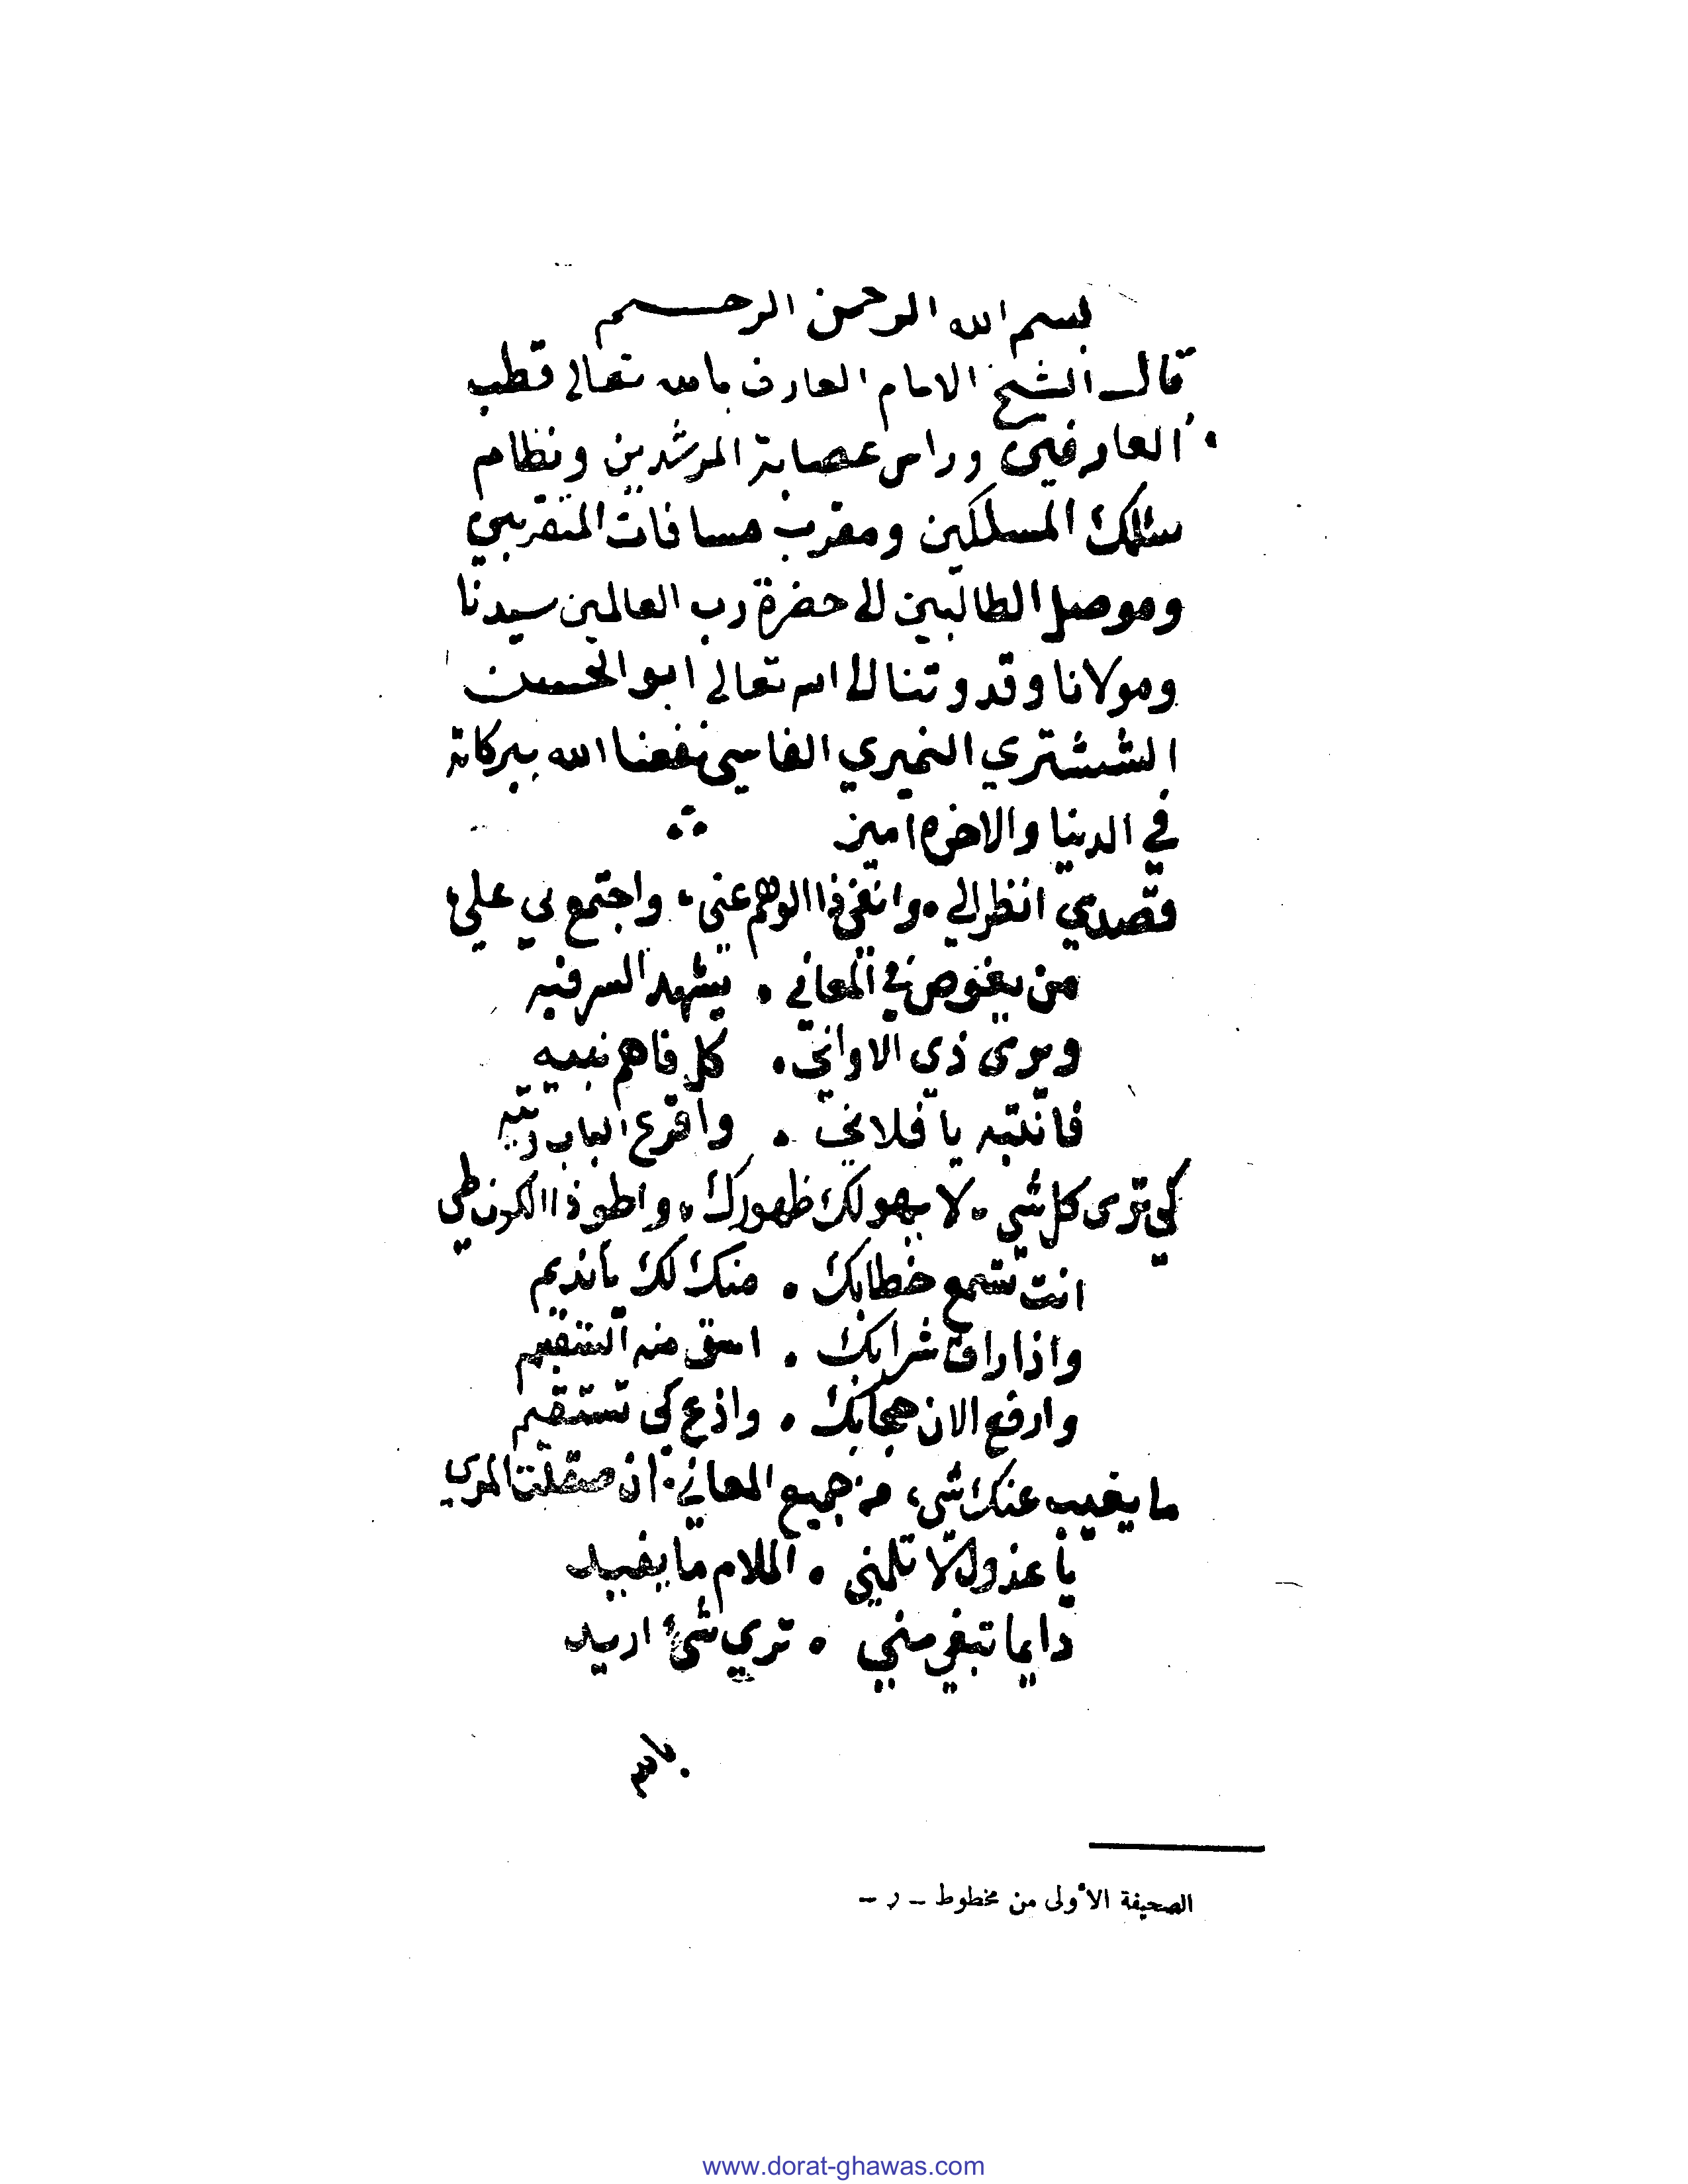 بسم الله الرحمن الرحيم
قال الشيخ الامام العارف بالله تعالى قطب
العارفين وراس عصابة المرشدين ونظام
سلك المسلكين ومقرب مسافات المتقربين
وموصل الطالبين الى حضرة رب العالمين سيدنا
ومولانا وقدوتنا الى الله تعالى ابو الحسن
الششتري النميري الفاسي نفعنا الله ببركاته
في الدنيا والاخره امين
قصدي انظر الي • وانفي ذا الوهم عني • واجتمع بي علي
من يغوص في المعاني • يشهد السر فيه
ويرى ذي الاواني • كل فاهم نبيه
فانتبه يا فلاني • واقرع الباب
كي ترى كل شي • لا يهولك ظهورك • واطو ذا الكون طي
انت تسمع خطابك • منك لك يا نديم
واذا راق شرابك • اسق منه السقيم
وارفع الان حجابك • واذع كي تستقيم
ما يغيب عنك شي، من جميع المعاني • ان صقلت المري
يا عذولا لا تلمني • الملام ما يفيد
دايما تبغي مني • تري شئ اريد
الصحيفة الأولى من مخطوط - ر -
www.dorat-ghawas.com